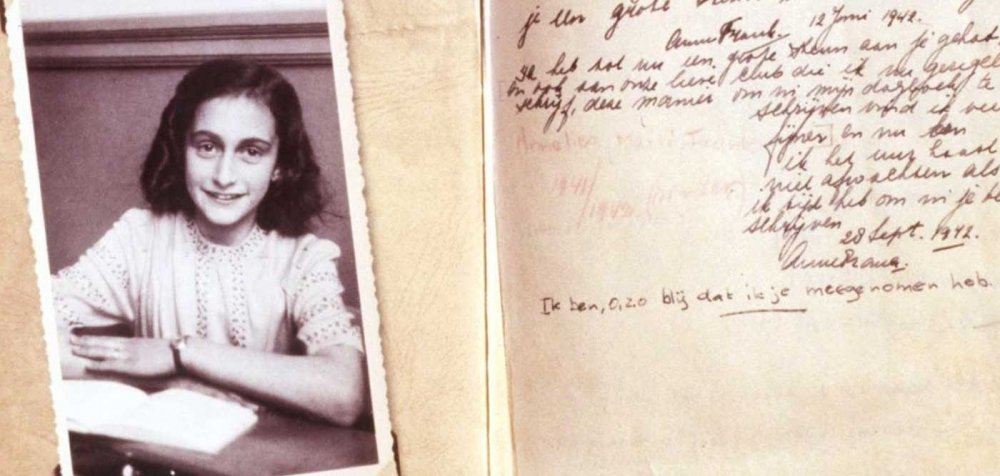 je voor grote
Anne Frank. 12 Juni 1942.
Ik heb tot nu een grote steun aan je gehad
en ook aan onze lieve club die ik nu geregeld
schrijf, deze manier om in mijn dagboek te
schrijven vind ik veel
fijner en nu
ik het uur haast
niet afwachten als
ik tijd heb om in je te
schrijven.
28 Sept. 1942.
Anne Frank.
Ik ben, o, zo blij dat ik je meegenomen heb.